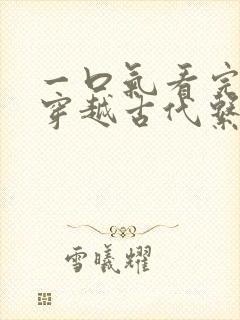 一口氣看完
穿越古代繫
雪曦耀